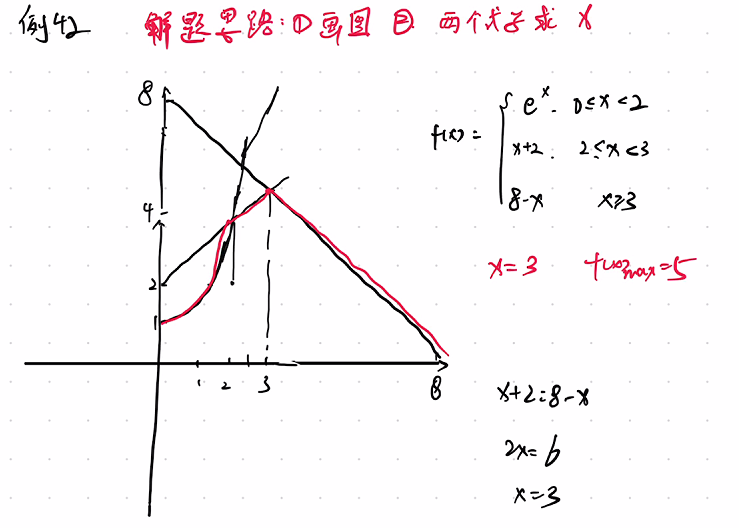 例42 解题思路:①画图 ② 两个式子求 x
8
4
2
1
1 2 3 8
f(x) = { e^x. 0≤x<2
x+2. 2≤x<3
8-x x≥3
x=3 f(x)max=5
x+2=8-x
2x=6
x=3